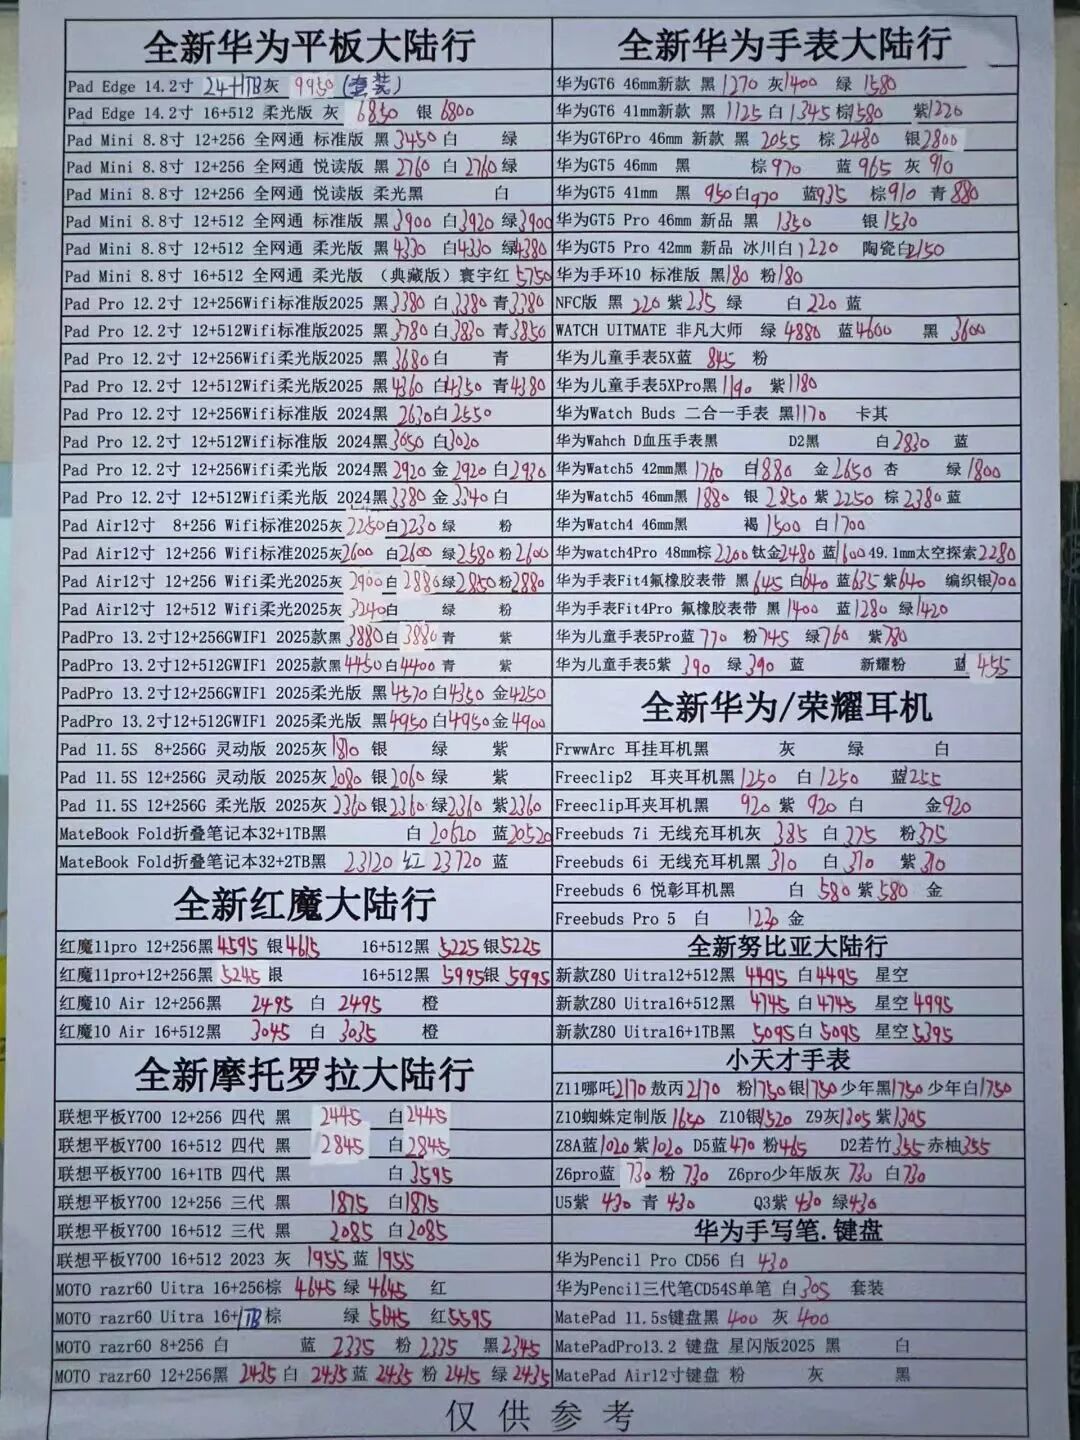 全新华为平板大陆行
Pad Edge 14.2寸 24+1TB灰 9950 (套装)
Pad Edge 14.2寸 16+512 柔光版 灰 6850 银 6800
Pad Mini 8.8寸 12+256 全网通 标准版 黑 3450 白 绿
Pad Mini 8.8寸 12+256 全网通 悦读版 黑 2760 白 2760 绿
Pad Mini 8.8寸 12+256 全网通 悦读版 柔光黑 白
Pad Mini 8.8寸 12+512 全网通 标准版 黑 3900 白 3920 绿 3900
Pad Mini 8.8寸 12+512 全网通 柔光版 黑 4330 白 4330 绿 4380
Pad Mini 8.8寸 16+512 全网通 柔光版 （典藏版）寰宇红 5750
Pad Pro 12.2寸 12+256Wifi标准版2025 黑 3380 白 3380 青 3380
Pad Pro 12.2寸 12+512Wifi标准版2025 黑 3780 白 3830 青 3850
Pad Pro 12.2寸 12+256Wifi柔光版2025 黑 3680 白 青
Pad Pro 12.2寸 12+512Wifi柔光版2025 黑 4360 白 4350 青 4380
Pad Pro 12.2寸 12+256Wifi标准版 2024黑 2630 白 2550
Pad Pro 12.2寸 12+512Wifi标准版 2024黑 3050 白 3020
Pad Pro 12.2寸 12+256Wifi柔光版 2024黑 2920 金 2920 白 2920
Pad Pro 12.2寸 12+512Wifi柔光版 2024黑 3380 金 3340 白
Pad Air12寸 8+256 Wifi标准2025灰 2250 白 2230 绿 粉
Pad Air12寸 12+256 Wifi标准2025灰 2600 白 2600 绿 2580 粉 2600
Pad Air12寸 12+256 Wifi柔光2025灰 2900 白 2880 绿 2850 粉 2880
Pad Air12寸 12+512 Wifi柔光2025灰 3240 白 绿 粉
PadPro 13.2寸12+256GWIF1 2025款黑 3880 白 3880 青 紫
PadPro 13.2寸12+512GWIF1 2025款黑 4450 白 4400 青 紫
PadPro 13.2寸12+256GWIF1 2025柔光版 黑 4370 白 4350 金 4250
PadPro 13.2寸12+512GWIF1 2025柔光版 黑 4950 白 4950 金 4900
Pad 11.5S 8+256G 灵动版 2025灰 1810 银 绿 紫
Pad 11.5S 12+256G 灵动版 2025灰 2080 银 2060 绿 紫
Pad 11.5S 12+256G 柔光版 2025灰 2360 银 2360 绿 2360 紫 2360
MateBook Fold折叠笔记本32+1TB黑 白 20620 蓝 20520
MateBook Fold折叠笔记本32+2TB黑 23120 红 23720 蓝
全新红魔大陆行
红魔11pro 12+256黑 4595 银 4615 16+512黑 5225 银 5225
红魔11pro+12+256黑 5245 银 16+512黑 5995 银 5995
红魔10 Air 12+256黑 2495 白 2495 橙
红魔10 Air 16+512黑 3045 白 3035 橙
全新摩托罗拉大陆行
联想平板Y700 12+256 四代 黑 2445 白 2445
联想平板Y700 16+512 四代 黑 2845 白 2845
联想平板Y700 16+1TB 四代 黑 白 3595
联想平板Y700 12+256 三代 黑 1875 白 1875
联想平板Y700 16+512 三代 黑 2085 白 2085
联想平板Y700 16+512 2023 灰 1955 蓝 1955
MOTO razr60 Uitra 16+256棕 4645 绿 4645 红
MOTO razr60 Uitra 16+1TB 棕 绿 5645 红 5595
MOTO razr60 8+256 白 蓝 2335 粉 2335 黑 2345
MOTO razr60 12+256黑 2435 白 2435 蓝 2435 粉 2415 绿 2435
全新华为手表大陆行
华为GT6 46mm新款 黑 1270 灰 1400 绿 1580
华为GT6 41mm新款 黑 1125 白 1345 棕 1580 紫 1220
华为GT6Pro 46mm 新款 黑 2055 棕 2480 银 2800
华为GT5 46mm 黑 棕 970 蓝 965 灰 910
华为GT5 41mm 黑 950 白 970 蓝 935 棕 910 青 880
华为GT5 Pro 46mm 新品 黑 1350 银 1530
华为GT5 Pro 42mm 新品 冰川白 1220 陶瓷白 2150
华为手环10 标准版 黑 180 粉 180
NFC版 黑 220 紫 235 绿 白 220 蓝
WATCH UITMATE 非凡大师 绿 4880 蓝 4600 黑 3600
华为儿童手表5X蓝 845 粉
华为儿童手表5XPro黑 1190 紫 1180
华为Watch Buds 二合一手表 黑 1170 卡其
华为Wahch D血压手表黑 D2黑 白 2830 蓝
华为Watch5 42mm黑 1760 白 1880 金 2650 杏 绿 1800
华为Watch5 46mm黑 1880 银 2850 紫 2250 棕 2380 蓝
华为Watch4 46mm黑 褐 1500 白 1700
华为watch4Pro 48mm棕 2200 钛金 2480 蓝 1600 49.1mm太空探索 2280
华为手表Fit4氟橡胶表带 黑 645 白 640 蓝 635 紫 640 编织银 700
华为手表Fit4Pro 氟橡胶表带 黑 1400 蓝 1280 绿 1420
华为儿童手表5Pro蓝 770 粉 745 绿 760 紫 780
华为儿童手表5紫 390 绿 390 蓝 新耀粉 蓝 455
全新华为/荣耀耳机
FrwwArc 耳挂耳机黑 灰 绿 白
Freeclip2 耳夹耳机黑 1250 白 1250 蓝 1255
Freeclip耳夹耳机黑 920 紫 920 白 金 920
Freebuds 7i 无线充耳机灰 385 白 375 粉 375
Freebuds 6i 无线充耳机黑 310 白 310 紫 310
Freebuds 6 悦彰耳机黑 白 580 紫 580 金
Freebuds Pro 5 白 1230 金
全新努比亚大陆行
新款Z80 Uitra12+512黑 4495 白 4495 星空
新款Z80 Uitra16+512黑 4745 白 4745 星空 4995
新款Z80 Uitra16+1TB黑 5095 白 5095 星空 5395
小天才手表
Z11哪吒 2170 敖丙 2170 粉 1750 银 1750 少年黑 1750 少年白 1750
Z10蜘蛛定制版 1650 Z10银 1520 Z9灰 1305 紫 1305
Z8A蓝 1020 紫 1020 D5蓝 470 粉 465 D2若竹 355 赤柚 355
Z6pro蓝 730 粉 730 Z6pro少年版灰 730 白 730
U5紫 430 青 430 Q3紫 430 绿 430
华为手写笔.键盘
华为Pencil Pro CD56 白 430
华为Pencil三代笔CD54S单笔 白 305 套装
MatePad 11.5s键盘黑 400 灰 400
MatePadPro13.2 键盘 星闪版2025 黑 白
MatePad Air12寸键盘 粉 灰 黑
仅供参考